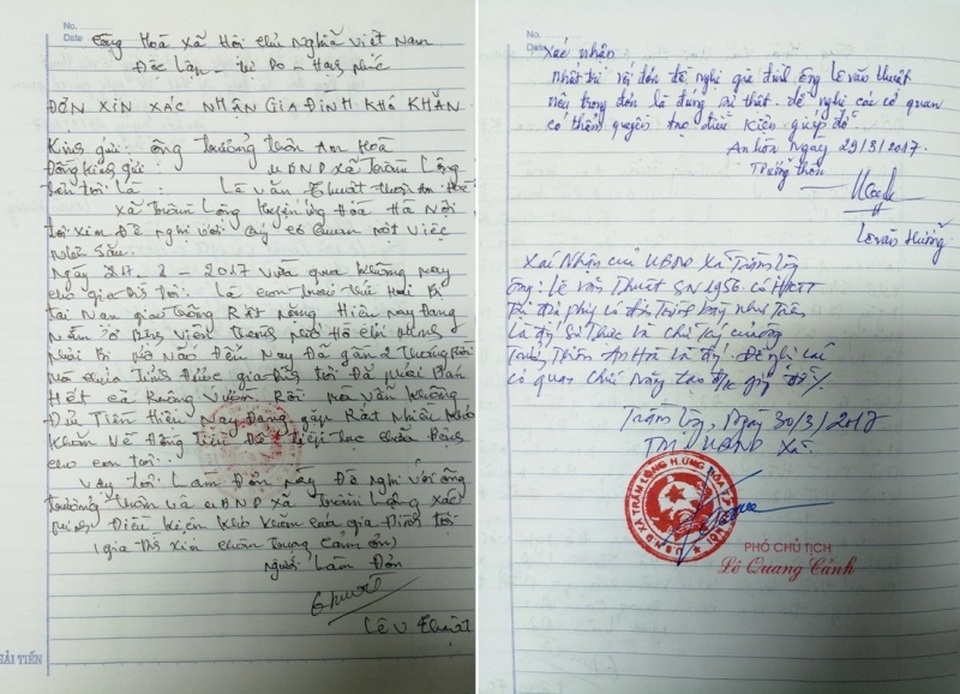 No.
Date
Cộng Hoà Xã Hội Chủ Nghĩa Việt Nam
Độc lập - Tự Do - Hạnh phúc
ĐƠN XIN XÁC NHẬN GIA ĐÌNH KHÓ KHĂN
Kính gửi: ông trưởng thôn An Hoà
Đồng kính gửi: UBND xã Trầm Lộng
tên tôi là: Lê văn Thuật thôn An Hoà
xã Trầm Lộng huyện ứng Hòa Hà Nội
tôi xin đề nghị với quý cơ quan một việc
như sau.
Ngày - 2 - 2017 vừa qua không may
cho gia đình tôi. là con trai thứ Hai Bị
tai Nạn giao thông Rất Nặng Hiện nay Đang
Nằm ở Bệnh viện
Bị Não Đến Nay Đã gần 2 tháng Rồi
mà chưa tỉnh Được gia đình tôi Đã phải Bán
Hết cả Ruộng vườn Rồi mà vẫn không
Đủ Tiền Hiện Nay Đang gặp Rất Nhiều khó
khăn về Đồng Tiền Để tiếp tục chữa Bệnh
cho con tôi.
vậy tôi Làm Đơn này Đề nghị với ông
trưởng thôn và UBND xã Trầm Lộng xác
Điều kiện khó khăn của gia Đình tôi
(gia đình xin chân trọng Cảm ơn)
người Làm Đơn
Lê v Thuật
HẢI TIẾN
No.
Date
Xác nhận
nhất trí với đơn đề nghị gia đình ông Lê văn thuật
nêu trong đơn là đúng sự thật. đề nghị các cơ quan
có thẩm quyền tạo điều kiện giúp đỡ
An hòa ngày 29/3/2017.
Trưởng thôn
Lê văn Hưởng
Xác Nhận của UBND Xã Trầm Lộng
Ông: Lê văn Thuật SN 1956. Có HKTT
Tại địa phương có đơn trình bày như trên
Là đúng sự thực và chữ ký của ông
Trưởng Thôn An Hoà là đúng. Đề nghị các
cơ quan chức năng tạo đ/k giúp đỡ/.
Trầm Lộng, Ngày 30/3/2017
TM UBND Xã.
U.B.N.D XÃ TRẦM LỘNG H. ỨNG HÒA T.P HÀ NỘI
PHÓ CHỦ TỊCH
Lê Quang Cảnh